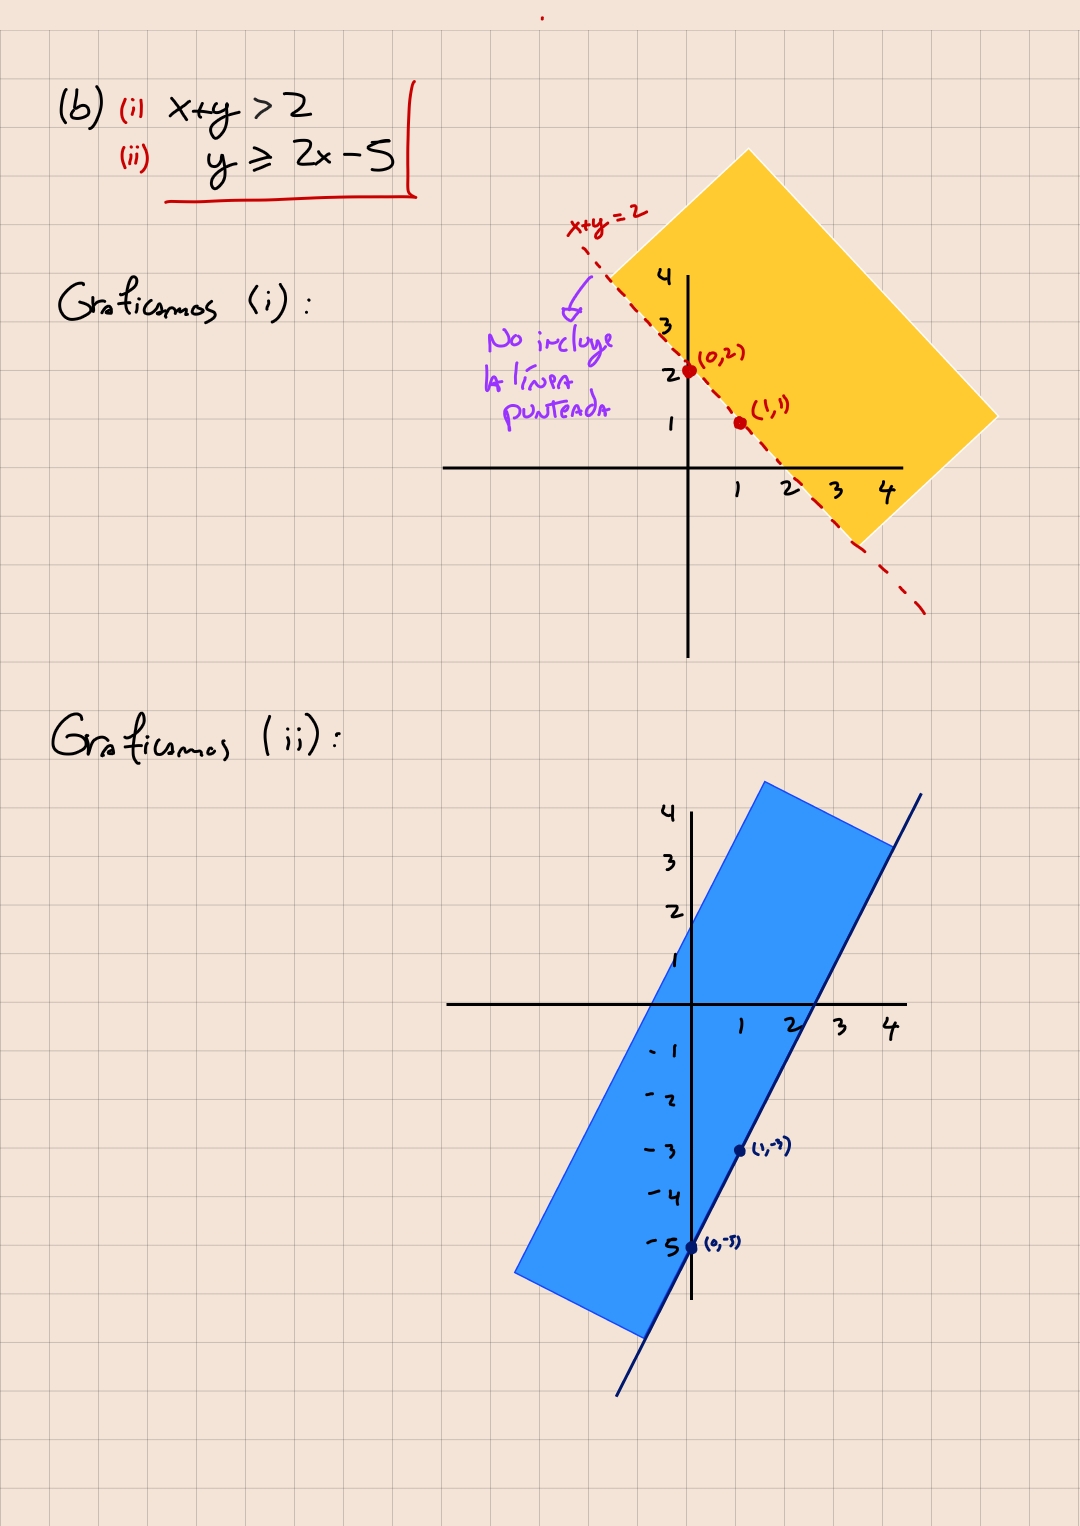 (b) (i) x+y > 2
(ii) y ≥ 2x - 5
x+y = 2
Graficamos (i):
4
3
No incluye
la línea
punteada
(0,2)
2
(1,1)
1
1 2 3 4
Graficamos (ii):
4
3
2
1
1 2 3 4
-1
-2
-3 (1,-3)
-4
-5 (0,-5)